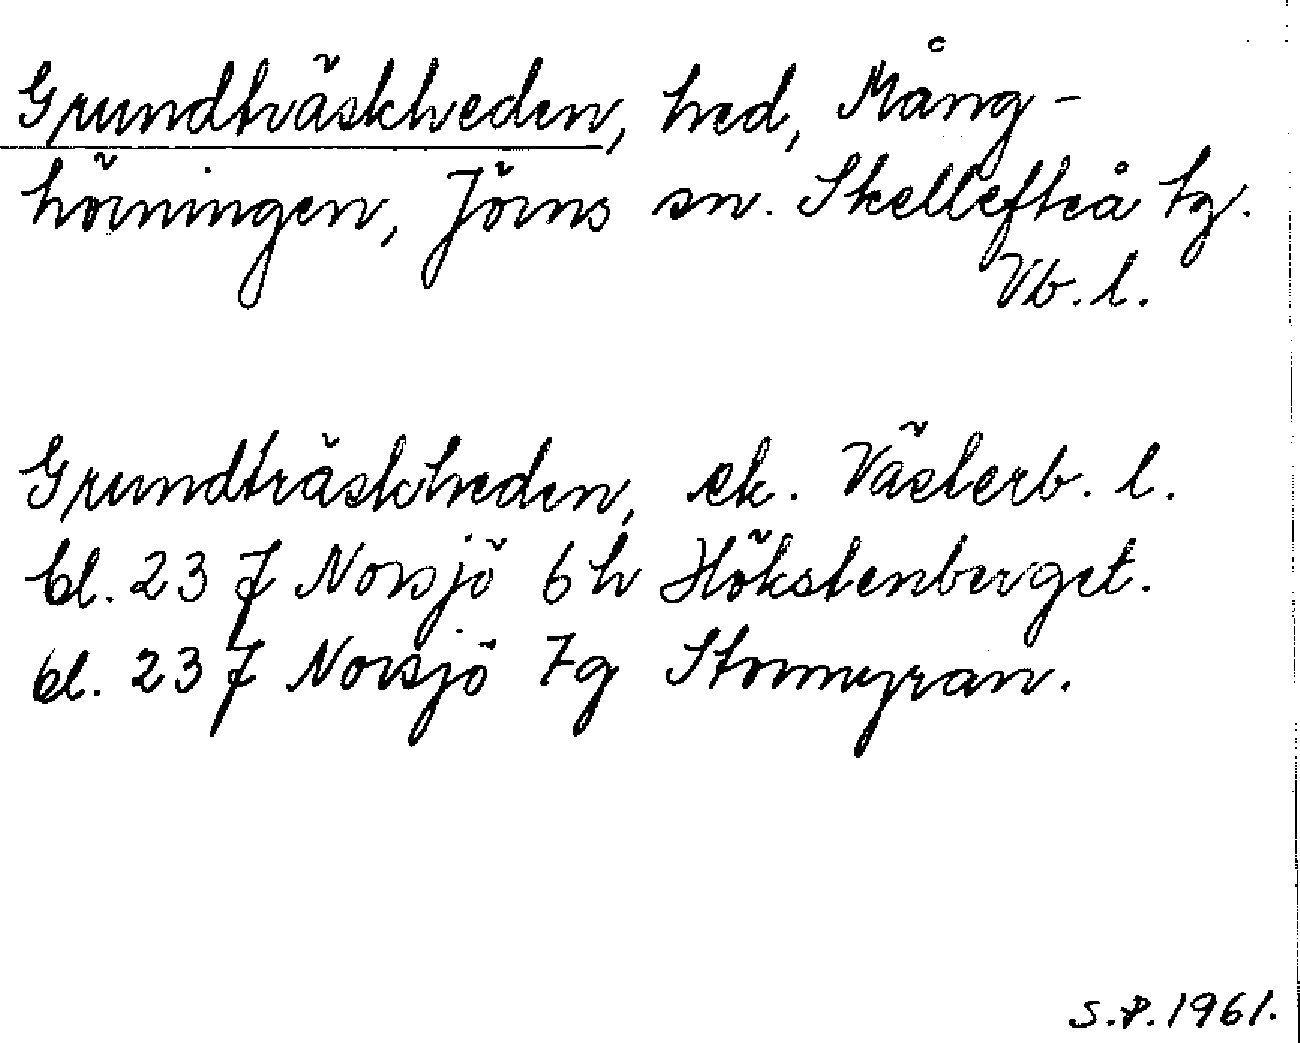 Grundträskheden, hed, Mång-
hörningen, Jörns sn. Skellefteå tg.
Vb. l.
Grundträskheden, ek. Västerb. l.
bl. 23 J Norsjö 6h Hökstenberget.
bl. 23 J Norsjö 7g Stormyran.
S.P. 1961.